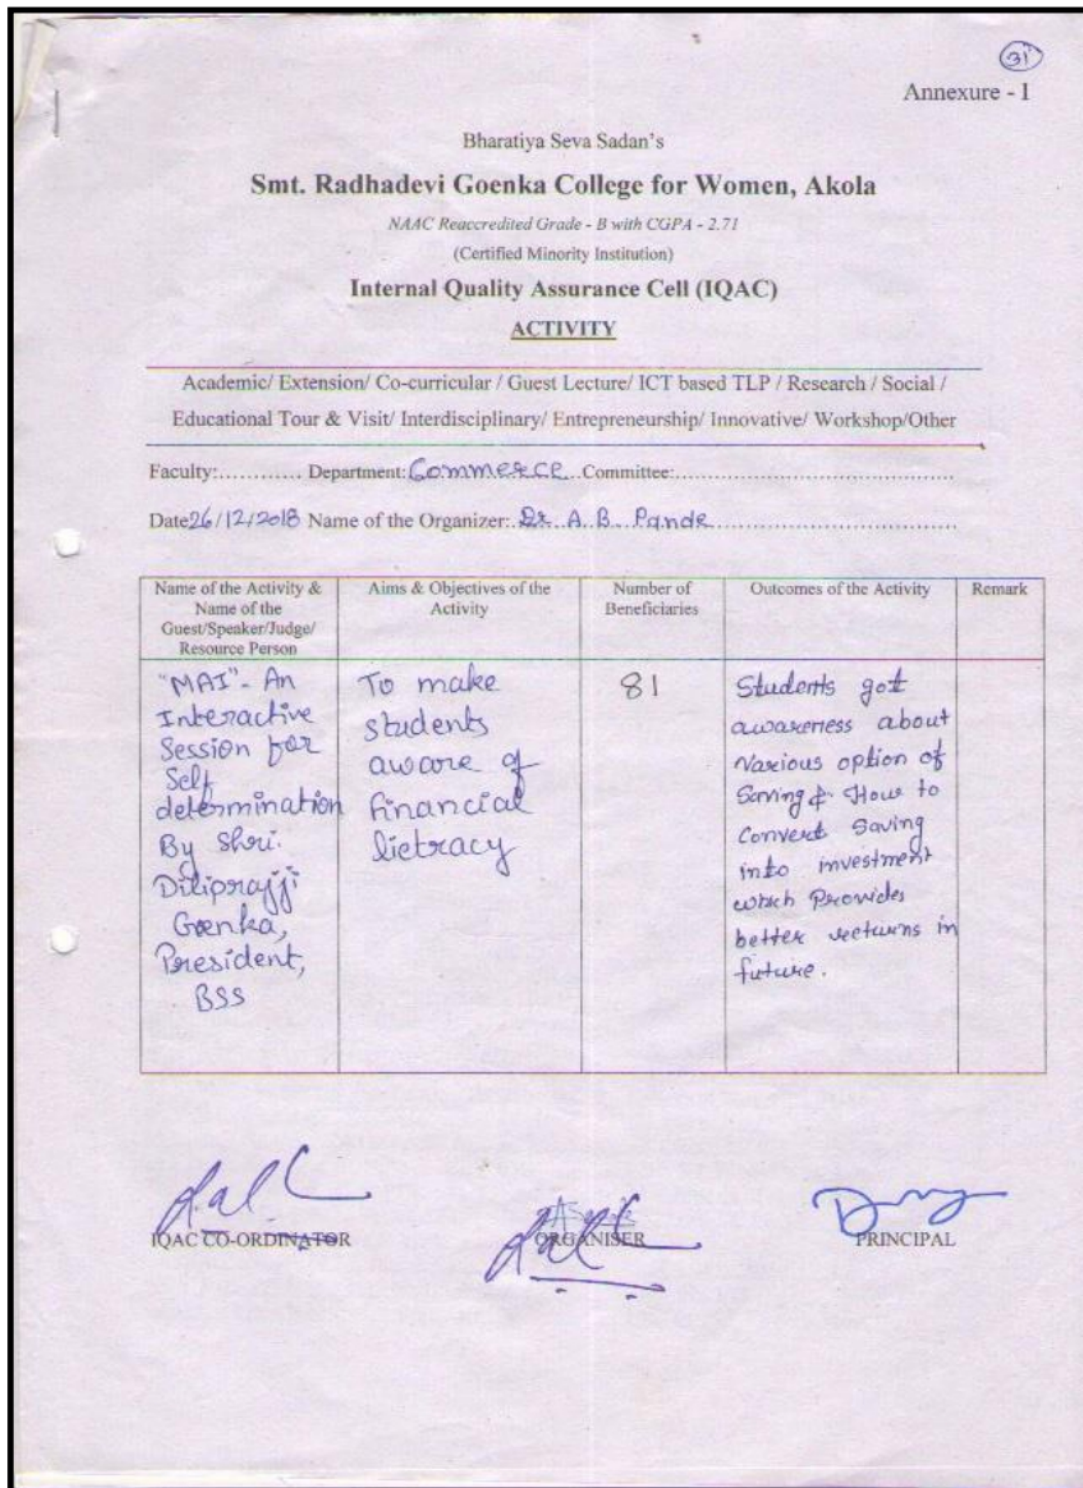 31
Annexure - 1
Bharatiya Seva Sadan's
Smt. Radhadevi Goenka College for Women, Akola
NAAC Reaccredited Grade - B with CGPA - 2.71
(Certified Minority Institution)
Internal Quality Assurance Cell (IQAC)
ACTIVITY
Academic/ Extension/ Co-curricular / Guest Lecture/ ICT based TLP / Research / Social /
Educational Tour & Visit/ Interdisciplinary/ Entrepreneurship/ Innovative/ Workshop/Other
Faculty:............ Department: Commerce Committee:............................................
Date 26/12/2018 Name of the Organizer: Dr. A. B. Pande
Name of the Activity &
Name of the
Guest/Speaker/Judge/
Resource Person
Aims & Objectives of the
Activity
Number of
Beneficiaries
Outcomes of the Activity
Remark
"MAI"- An
Interactive
Session for
Self
determination
By Shri.
Diliprajji
Goenka,
President,
BSS
To make
students
aware of
financial
lietracy
81
Students got
awareness about
Various option of
Saving & How to
Convert Saving
into investment
which Provides
better reeturns in
future.
IQAC CO-ORDINATOR
ORGANISER
PRINCIPAL